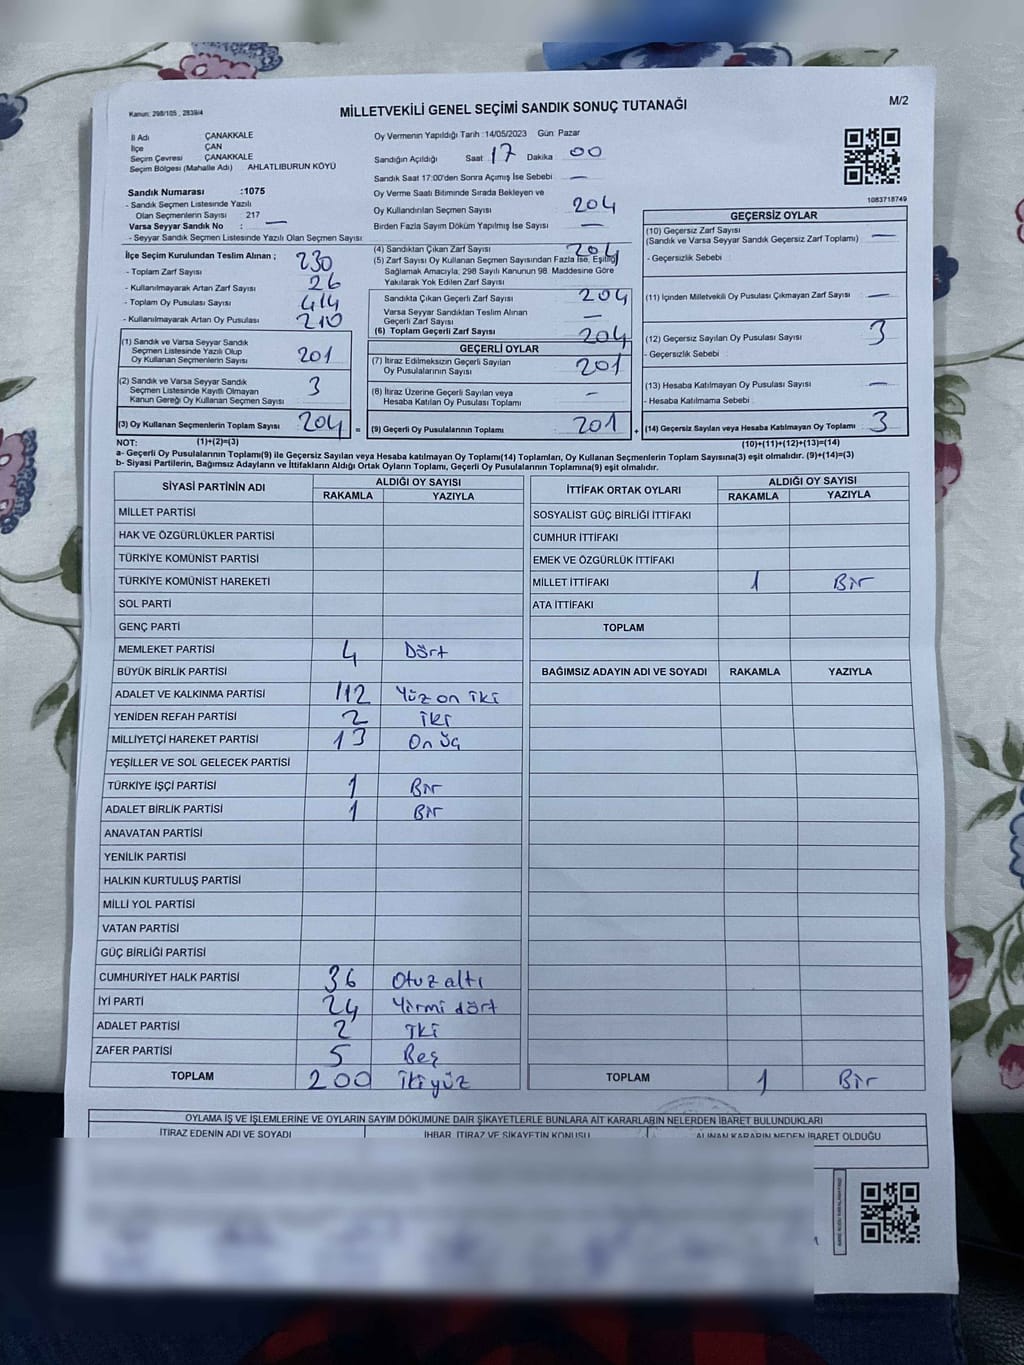 Kanun: 298/105 , 2839/4
MİLLETVEKİLİ GENEL SEÇİMİ SANDIK SONUÇ TUTANAĞI
M/2
İl Adı ÇANAKKALE
İlçe ÇAN
Seçim Çevresi ÇANAKKALE
Seçim Bölgesi (Mahalle Adı) AHLATLIBURUN KÖYÜ
Sandık Numarası :1075
- Sandık Seçmen Listesinde Yazılı
Olan Seçmenlerin Sayısı 217
Varsa Seyyar Sandık No : —
- Seyyar Sandık Seçmen Listesinde Yazılı Olan Seçmen Sayısı
Oy Vermenin Yapıldığı Tarih :14/05/2023 Gün: Pazar
Sandığın Açıldığı Saat 17 Dakika 00
Sandık Saat 17:00'den Sonra Açımış İse Sebebi —
Oy Verme Saati Bitiminde Sırada Bekleyen ve
Oy Kullandırılan Seçmen Sayısı 204
Birden Fazla Sayım Döküm Yapılmış İse Sayısı —
1083718749
İlçe Seçim Kurulundan Teslim Alınan ; 230
- Toplam Zarf Sayısı
- Kullanılmayarak Artan Zarf Sayısı 26
- Toplam Oy Pusulası Sayısı 414
- Kullanılmayarak Artan Oy Pusulası 210
(1) Sandık ve Varsa Seyyar Sandık
Seçmen Listesinde Yazılı Olup
Oy Kullanan Seçmenlerin Sayısı 201
(2) Sandık ve Varsa Seyyar Sandık
Seçmen Listesinde Kayıtlı Olmayan
Kanun Gereği Oy Kullanan Seçmen Sayısı 3
(3) Oy Kullanan Seçmenlerin Toplam Sayısı 204 =
(4) Sandıktan Çıkan Zarf Sayısı 204
(5) Zarf Sayısı Oy Kullanan Seçmen Sayısından Fazla İse, Eşitliği
Sağlamak Amacıyla, 298 Sayılı Kanunun 98. Maddesine Göre
Yakılarak Yok Edilen Zarf Sayısı
Sandıkta Çıkan Geçerli Zarf Sayısı 204
Varsa Seyyar Sandıktan Teslim Alınan
Geçerli Zarf Sayısı —
(6) Toplam Geçerli Zarf Sayısı 204
GEÇERLİ OYLAR
(7) İtiraz Edilmeksizin Geçerli Sayılan
Oy Pusulalarının Sayısı 201
(8) İtiraz Üzerine Geçerli Sayılan veya
Hesaba Katılan Oy Pusulası Toplamı -
(9) Geçerli Oy Pusulalarının Toplamı 201 +
GEÇERSİZ OYLAR
(10) Geçersiz Zarf Sayısı —
(Sandık ve Varsa Seyyar Sandık Geçersiz Zarf Toplamı)
- Geçersizlik Sebebi
(11) İçinden Milletvekili Oy Pusulası Çıkmayan Zarf Sayısı —
(12) Geçersiz Sayılan Oy Pusulası Sayısı 3
- Geçersizlik Sebebi
(13) Hesaba Katılmayan Oy Pusulası Sayısı —
- Hesaba Katılmama Sebebi
(14) Geçersiz Sayılan veya Hesaba Katılmayan Oy Toplamı 3
NOT: (1)+(2)=(3) (10)+(11)+(12)+(13)=(14)
a- Geçerli Oy Pusulalarının Toplamı(9) ile Geçersiz Sayılan veya Hesaba katılmayan Oy Toplamı(14) Toplamları, Oy Kullanan Seçmenlerin Toplam Sayısına(3) eşit olmalıdır. (9)+(14)=(3)
b- Siyasi Partilerin, Bağımsız Adayların ve İttifakların Aldığı Ortak Oyların Toplamı, Geçerli Oy Pusulalarının Toplamına(9) eşit olmalıdır.
SİYASİ PARTİNİN ADI ALDIĞI OY SAYISI
RAKAMLA YAZIYLA
MİLLET PARTİSİ
HAK VE ÖZGÜRLÜKLER PARTİSİ
TÜRKİYE KOMÜNİST PARTİSİ
TÜRKİYE KOMÜNİST HAREKETİ
SOL PARTİ
GENÇ PARTİ
MEMLEKET PARTİSİ 4 Dört
BÜYÜK BİRLİK PARTİSİ
ADALET VE KALKINMA PARTİSİ 112 Yüz on iki
YENİDEN REFAH PARTİSİ 2 iki
MİLLİYETÇİ HAREKET PARTİSİ 13 On üç
YEŞİLLER VE SOL GELECEK PARTİSİ
TÜRKİYE İŞÇİ PARTİSİ 1 Bir
ADALET BİRLİK PARTİSİ 1 Bir
ANAVATAN PARTİSİ
YENİLİK PARTİSİ
HALKIN KURTULUŞ PARTİSİ
MİLLİ YOL PARTİSİ
VATAN PARTİSİ
GÜÇ BİRLİĞİ PARTİSİ
CUMHURİYET HALK PARTİSİ 36 Otuz altı
İYİ PARTİ 24 Yirmi dört
ADALET PARTİSİ 2 iki
ZAFER PARTİSİ 5 Beş
TOPLAM 200 iki yüz
İTTİFAK ORTAK OYLARI ALDIĞI OY SAYISI
RAKAMLA YAZIYLA
SOSYALİST GÜÇ BİRLİĞİ İTTİFAKI
CUMHUR İTTİFAKI
EMEK VE ÖZGÜRLÜK İTTİFAKI
MİLLET İTTİFAKI 1 Bir
ATA İTTİFAKI
TOPLAM
BAĞIMSIZ ADAYIN ADI VE SOYADI RAKAMLA YAZIYLA
TOPLAM 1 Bir
OYLAMA İŞ VE İŞLEMLERİNE VE OYLARIN SAYIM DÖKÜMÜNE DAİR ŞİKAYETLERLE BUNLARA AİT KARARLARIN NELERDEN İBARET BULUNDUKLARI
İTİRAZ EDENİN ADI VE SOYADI İHBAR, İTİRAZ VE ŞİKAYETİN KONUSU ALINAN KARARIN NEDEN İBARET OLDUĞU